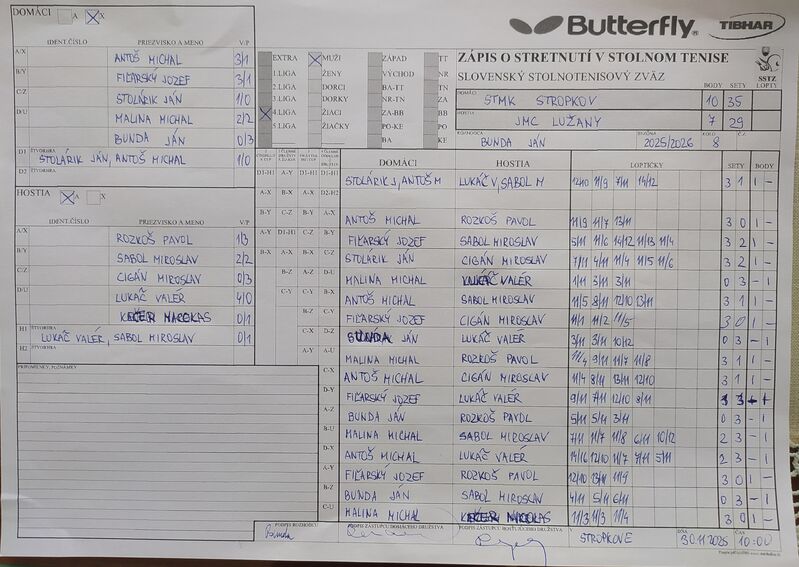 DOMÁCI A X
IDENT.ČÍSLO PRIEZVISKO A MENO V/P
A/X ANTOŠ MICHAL 3/1
B/Y FIĽARSKÝ JOZEF 3/1
C/Z STOLÁRIK JÁN 1/0
D/U MALINA MICHAL 2/2
BUNDA JÁN 0/3
D1 ŠTVORHRA STOLÁRIK JÁN, ANTOŠ MICHAL 1/0
D2 ŠTVORHRA
HOSTIA A X
IDENT.ČÍSLO PRIEZVISKO A MENO V/P
A/X ROZKOŠ PAVOL 1/3
B/Y SABOL MIROSLAV 2/2
C/Z CIGÁN MIROSLAV 0/3
D/U LUKÁČ VALÉR 4/0
0/1
H1 ŠTVORHRA LUKÁČ VALÉR, SABOL MIROSLAV 0/1
H2 ŠTVORHRA
PRIPOMIENKY, POZNÁMKY
Butterfly TIBHAR
ZÁPIS O STRETNUTÍ V STOLNOM TENISE
SLOVENSKÝ STOLNOTENISOVÝ ZVÄZ
SSTZ
EXTRA MUŽI ZÁPAD TT
1.LIGA ŽENY VÝCHOD NR
2.LIGA DORCI BA-TT TN
3.LIGA DORKY NR-TN ZA
4.LIGA ŽIACI ZA-BB BB
5.LIGA ŽIAČKY PO-KE PO
BA KE
BODY SETY LOPTY
DOMÁCI STMK STROPKOV 10 35
HOSTIA JMC LUŽANY 7 29
ROZHODCA BUNDA JÁN SEZÓNA 2025/2026 KOLO 8 Č.Z.
DOMÁCI HOSTIA LOPTIČKY SETY BODY
D1-H1 A-Y D1-H1 STOLÁRIK J, ANTOŠ M LUKÁČ V, SABOL M 12/10 11/9 7/11 14/12 3 1 1 -
A-X B-X D2-H2
B-Y C-Z A-X ANTOŠ MICHAL ROZKOŠ PAVOL 11/9 11/7 13/11 3 0 1 -
A-Y D1-H1 C-Z B-Y FIĽARSKÝ JOZEF SABOL MIROSLAV 5/11 11/6 14/12 11/13 11/4 3 2 1 -
B-X A-X B-X C-Z STOLÁRIK JÁN CIGÁN MIROSLAV 7/11 4/11 11/4 11/5 11/6 3 2 1 -
B-Z A-Z D-U MALINA MICHAL LUKÁČ VALÉR 1/11 3/11 3/11 0 3 - 1
C-Y C-Y B-X ANTOŠ MICHAL SABOL MIROSLAV 11/5 8/11 12/10 13/11 3 1 1 -
B-Z C-Y FIĽARSKÝ JOZEF CIGÁN MIROSLAV 11/1 11/2 11/5 3 0 1 -
C-X D-Z BUNDA JÁN LUKÁČ VALÉR 3/11 3/11 10/12 0 3 - 1
A-Y A-U MALINA MICHAL ROZKOŠ PAVOL 11/4 9/11 11/7 11/8 3 1 1 -
C-X ANTOŠ MICHAL CIGÁN MIROSLAV 11/4 8/11 13/11 12/10 3 1 1 -
D-Y FIĽARSKÝ JOZEF LUKÁČ VALÉR 9/11 7/11 12/10 8/11
A-Z BUNDA JÁN ROZKOŠ PAVOL 5/11 5/11 3/11 0 3 - 1
B-U MALINA MICHAL SABOL MIROSLAV 7/11 11/7 11/8 6/11 10/12 2 3 - 1
D-X ANTOŠ MICHAL LUKÁČ VALÉR 14/16 12/10 11/7 7/11 5/11 2 3 - 1
A-Y FIĽARSKÝ JOZEF ROZKOŠ PAVOL 12/10 13/11 11/9 3 0 1 -
B-Z BUNDA JÁN SABOL MIROSLAV 4/11 5/11 6/11 0 3 - 1
C-U MALINA MICHAL 11/3 11/3 11/4 3 0 1 -
PODPIS ROZHODCU PODPIS ZÁSTUPCU DOMÁCEHO DRUŽSTVA PODPIS ZÁSTUPCU HOSŤUJÚCEHO DRUŽSTVA
Bunda V STROPKOVE DŇA 30.11.2025 ČAS 10:00